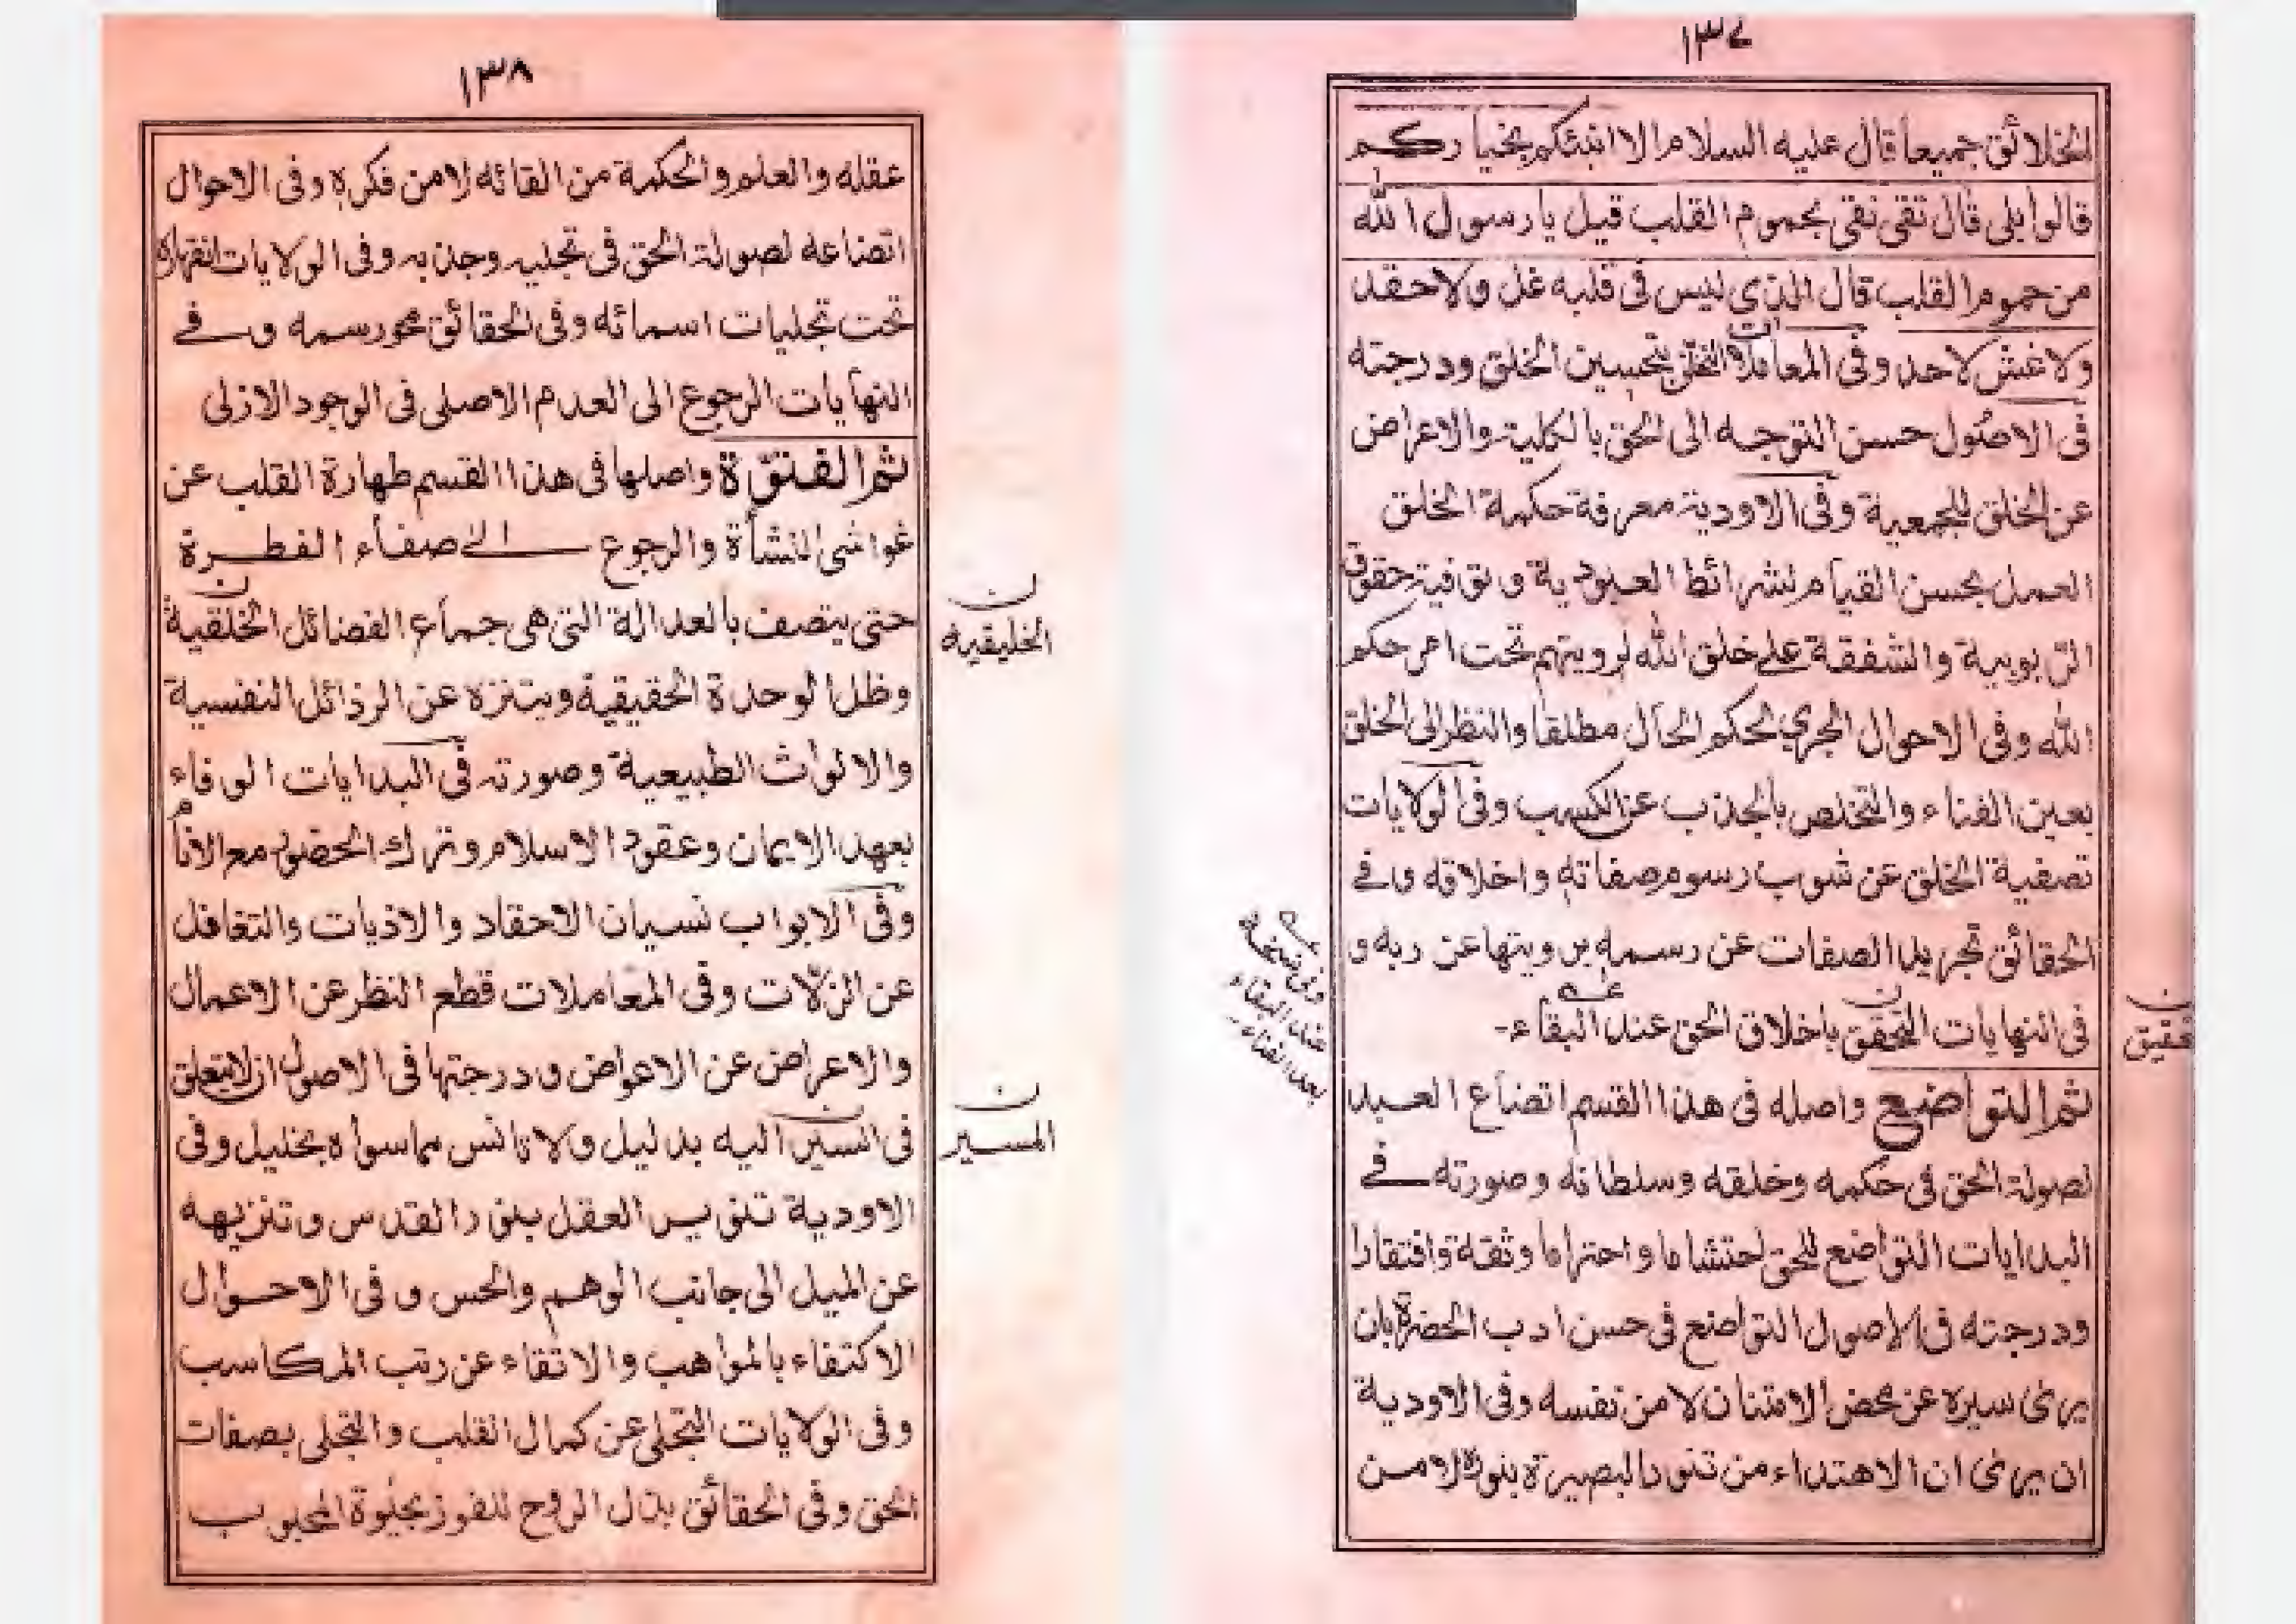 ١٣٧
الخلائق جميعا قال عليه السلام الا انبئكم بخياركم
قالوا بلى قال تقى نقى مجموم القلب قيل يا رسول الله
من مجموم القلب قال الذى ليس فى قلبه غل ولاحقد
ولا غش لاحد وفى المعاملات التخلق بتحسين الخلق ودرجته
فى الاصول حسن التوجه الى الحق بالكلية والاعراض
عن الخلق للجمعية وفى الاودية معرفة حكمة الخلق
العمل بحسن القيام لشرائط العبودية وتوفية حقوق
الربوبية والشفقة على خلق الله لرويتهم تحت امر حكم
الله وفى الاحوال الجرى لحكم الحال مطلقا والنظر الى الخلق
بعين الفناء والتخلص بالجذب عن الكسب وفى الولايات
تصفية الخلق عن شوب رسوم صفاته واخلاقه وفى
الحقائق تجريد الصفات عن رسمه برويتها عن ربه و
فى النهايات التحقق باخلاق الحق عند البقاء-
ثم التواضع واصله فى هذا القسم اتضاع العبد
لصولة الحق فى حكمه وخلقه وسلطانه وصورته فى
البدايات التواضع للحق احتشاما واحتراما وثقة وافتقارا
ودرجته فى الاصول التواضع فى حسن ادب الحضرة بان
يرى سيره عن محض الامتنان لا من نفسه وفى الاودية
ان يرى ان الاهتداء من تنور البصيرة بنوره لامن
ن
تحقيق
عه
وفى نسخة
عند البقاء
بعد الفناء
١٣٨
عقله والعلم والحكمة من القائه لامن فكره وفى الاحوال
اتضاعه لصولة الحق فى تجليه وجذبه وفى الولايات انقهاره
تحت تجليات اسمائه وفى الحقائق محو رسمه وفى
النهايات الرجوع الى العدم الاصلى فى الوجود الازلى
ثم الفتوة واصلها فى هذا القسم طهارة القلب عن
غواشى النشأة والرجوع الى صفاء الفطرة
حتى يتصف بالعدالة التى هى جماع الفضائل الخلقية
وظل الوحدة الحقيقية ويتنزه عن الرذائل النفسية
والالواث الطبيعية وصورته فى البدايات الوفاء
بعهد الايمان وعقود الاسلام وترك الخصوم مع الانام
وفى الابواب نسيان الاحقاد والاذيات والتغافل
عن الزلات وفى المعاملات قطع النظر عن الاعمال
والاعراض عن الاعواض ودرجتها فى الاصول ان لا يتعلق
فى السير اليه بدليل ولا تانس بماسواه بخليل وفى
الاودية تنوير العقل بنور القدس وتنزيهه
عن الميل الى جانب الوهم والحس وفى الاحوال
الاكتفاء بالمواهب والاتقاء عن رتب المكاسب
وفى الولايات التخلى عن كمال القلب والتجلى بصفات
الحق وفى الحقائق بذل الروح للفوز بحيوة المحبوب
ن
الخليقيه
ن
المسير